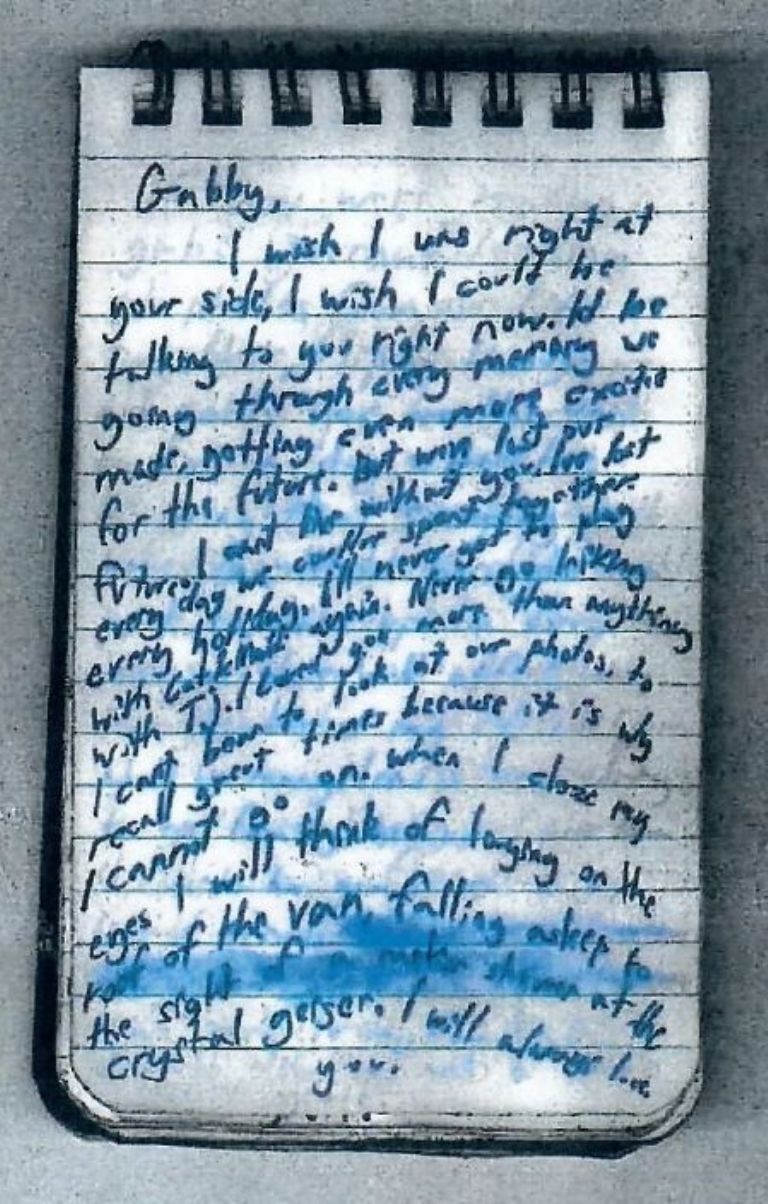 Gabby,
I wish I was right at
your side, I wish I could be
talking to you right now. Id be
going through every memory we
made, getting even more excited
for the future. But we've lost our
future. I cant live without you. Ive lost
every day we could've spent together.
every holiday. I'll never get to play
with again. Never go hiking
with TJ. I loved you more than anything
I cant bear to look at our photos, to
recall great times because it is why
I cannot go on. when I close my
eyes I will think of laughing on the
roof of the van, falling asleep to
the sight of at the
crystal geiser. I will always love
you.